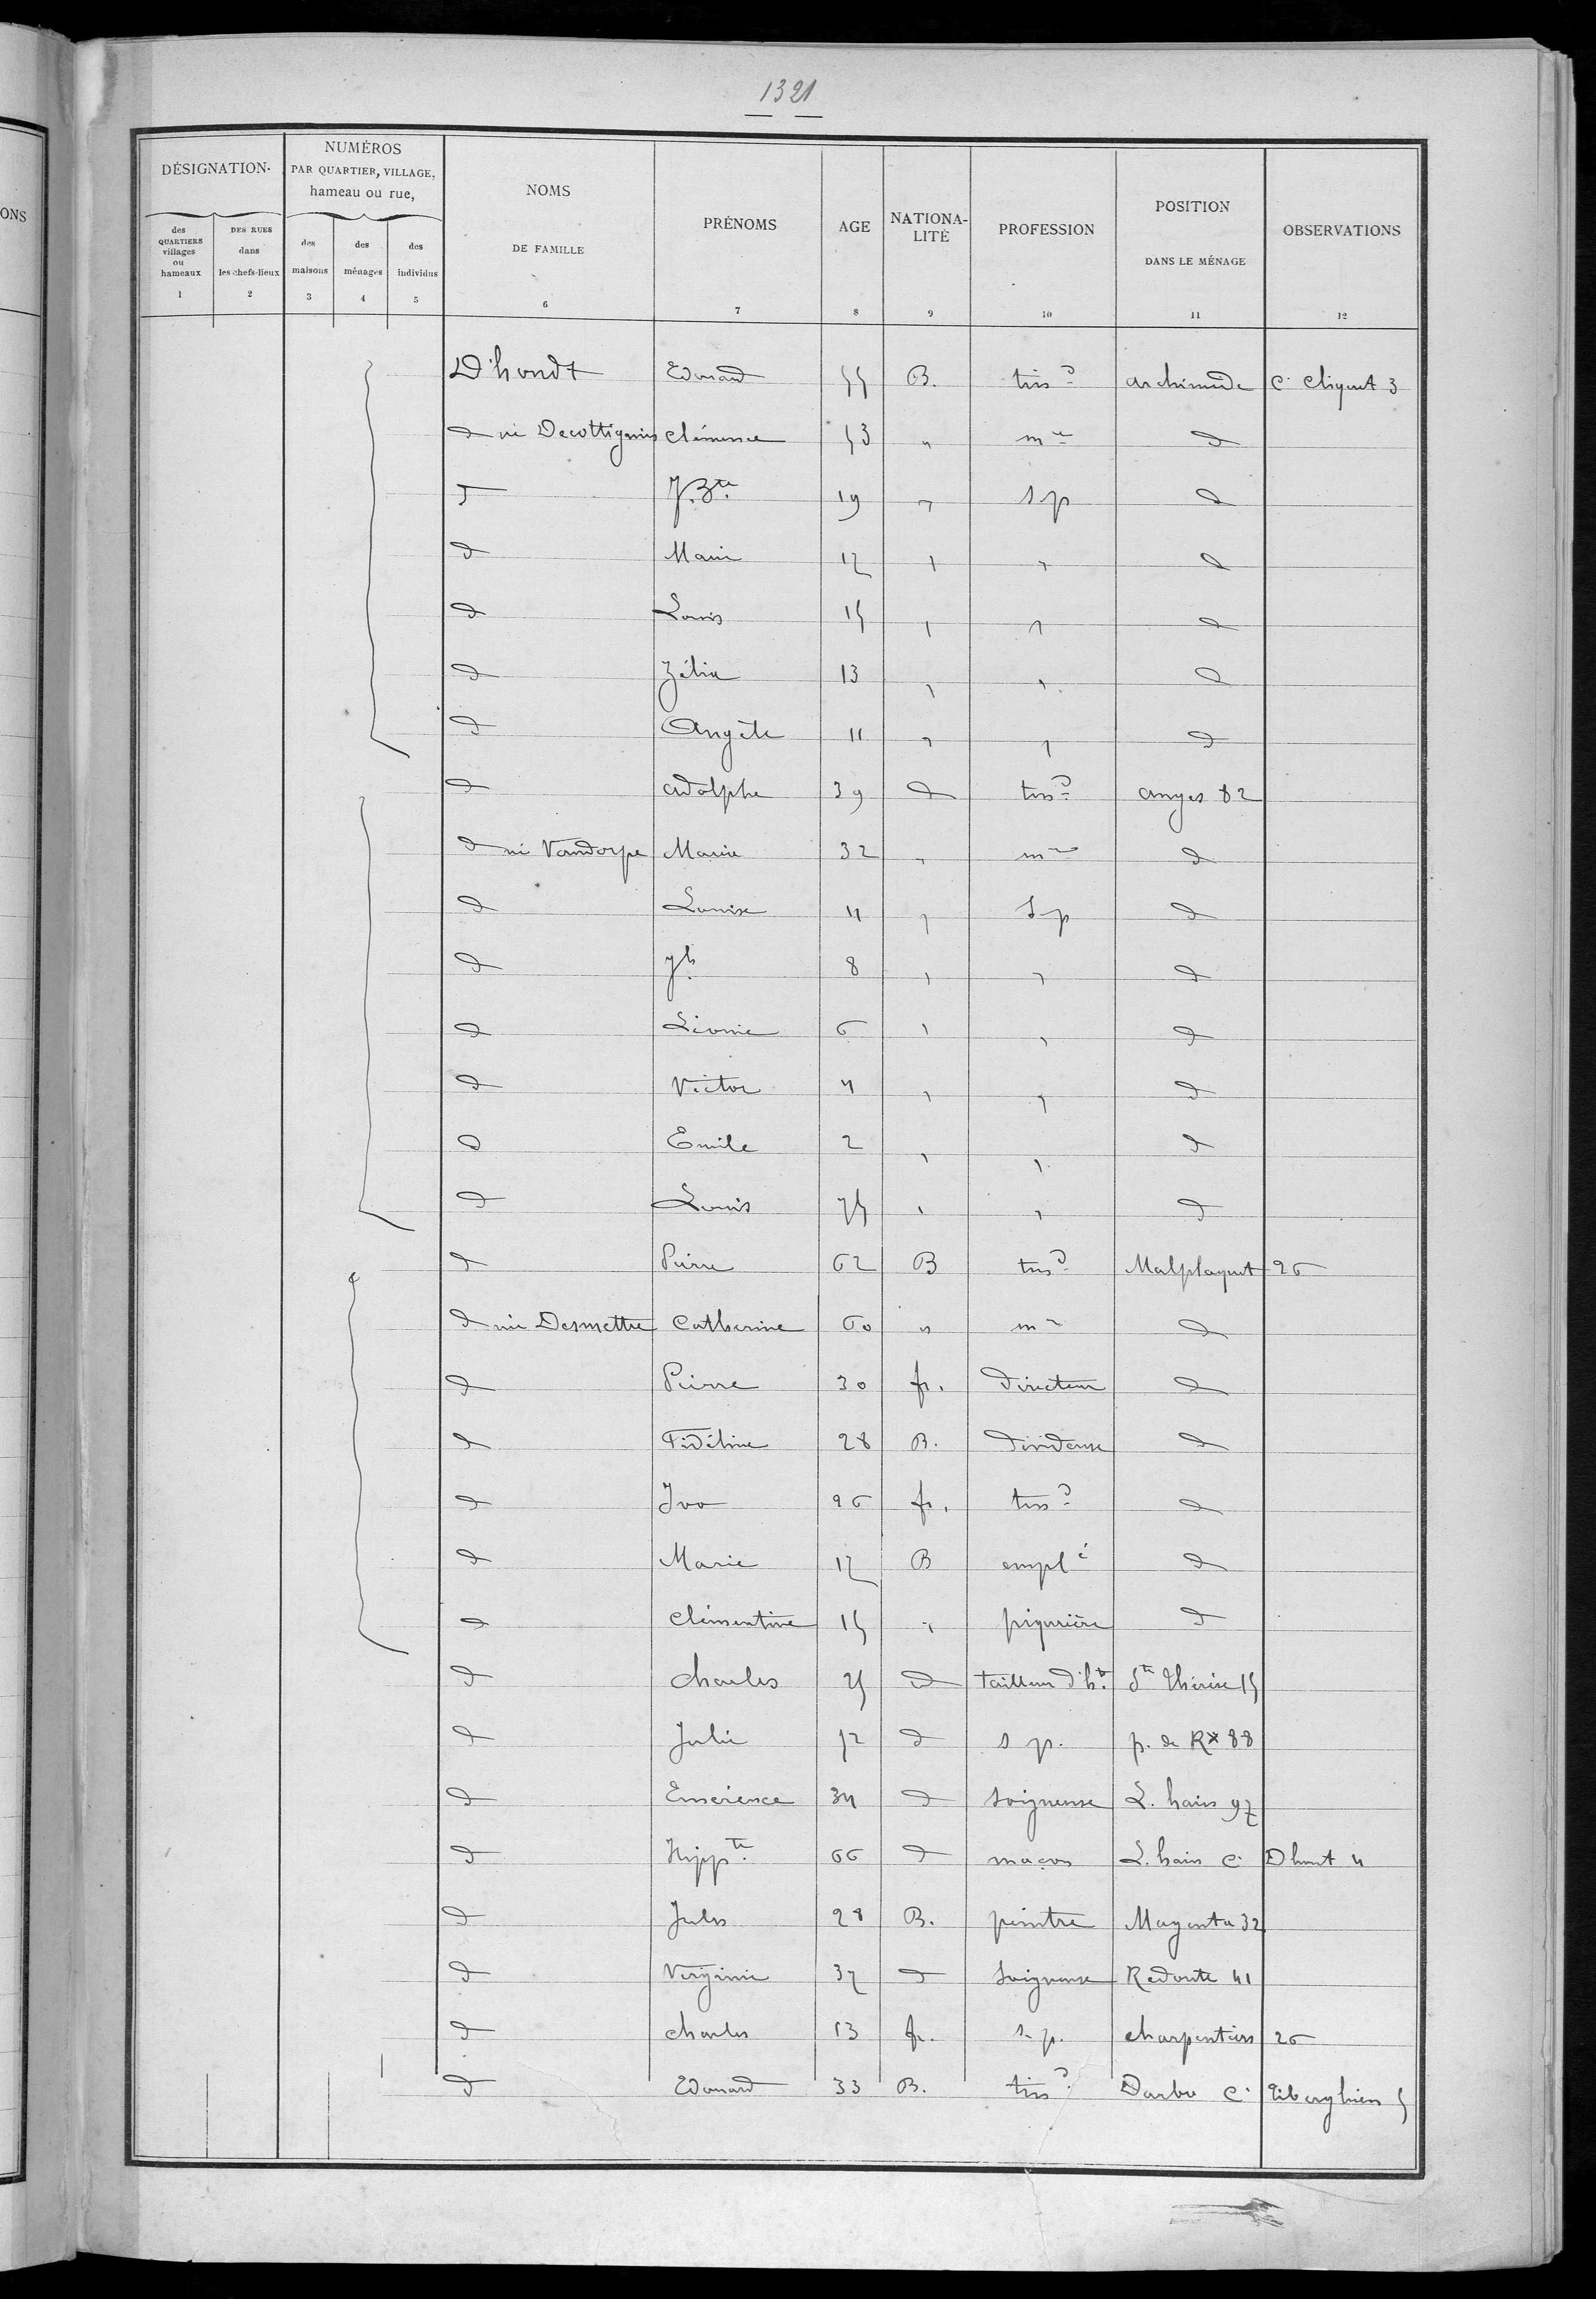 1321
DÉSIGNATION
NUMÉROS PAR QUARTIER, VILLAGE, hameau ou rue,
NOMS DE FAMILLE
PRÉNOMS
AGE
NATIONALITÉ
PROFESSION
POSITION DANS LE MÉNAGE
OBSERVATIONS
des QUARTIERS villages ou hameaux
DES RUES dans les chefs-lieux
des maisons
des ménages
des individus
1 2 3 4 5 6 7 8 9 10 11 12
D'hondt Edouard 55 B. tiss d archimède c. Cliquet 3
d né Decottignies Clémence 53 " m re d
d J. Bte 19 " s p d
d Marie 17 " " d
d Louis 15 " " d
d Zélia 13 " " d
d Angèle 11 " " d
d adolphe 39 d tiss d anges 82
d né Vandorpe Marie 32 " m re d
d Louise 11 " s p d
d Jh 8 " " d
d Léonie 6 " " d
d Victor 4 " " d
d Emile 2 " " d
d Louis 75 " " d
d Pierre 62 B tiss d Malplaquet 26
d née Desmettre Catherine 60 " m re d
d Pierre 30 fr. directeur d
d Fidéline 28 B. dévideuse d
d Ivo 26 fr. tiss d d
d Marie 17 B empl é d
d Clémentine 15 " piqurière d
d Charles 25 d tailleur d'h ts Ste Thérèse 15
d Julie 52 d s p. p. de Rx 88
d Emérence 34 d soigneuse L. haies 97
d Hippte 66 d maçon L. haies c. Dhont 4
d Jules 28 B. peintre Magenta 32
d Virginie 37 d soigneuse Redoute 41
d Charles 13 fr. s. p. charpentiers 26
d Edouard 33 B. tiss d Darbo c. Tiberghien 5